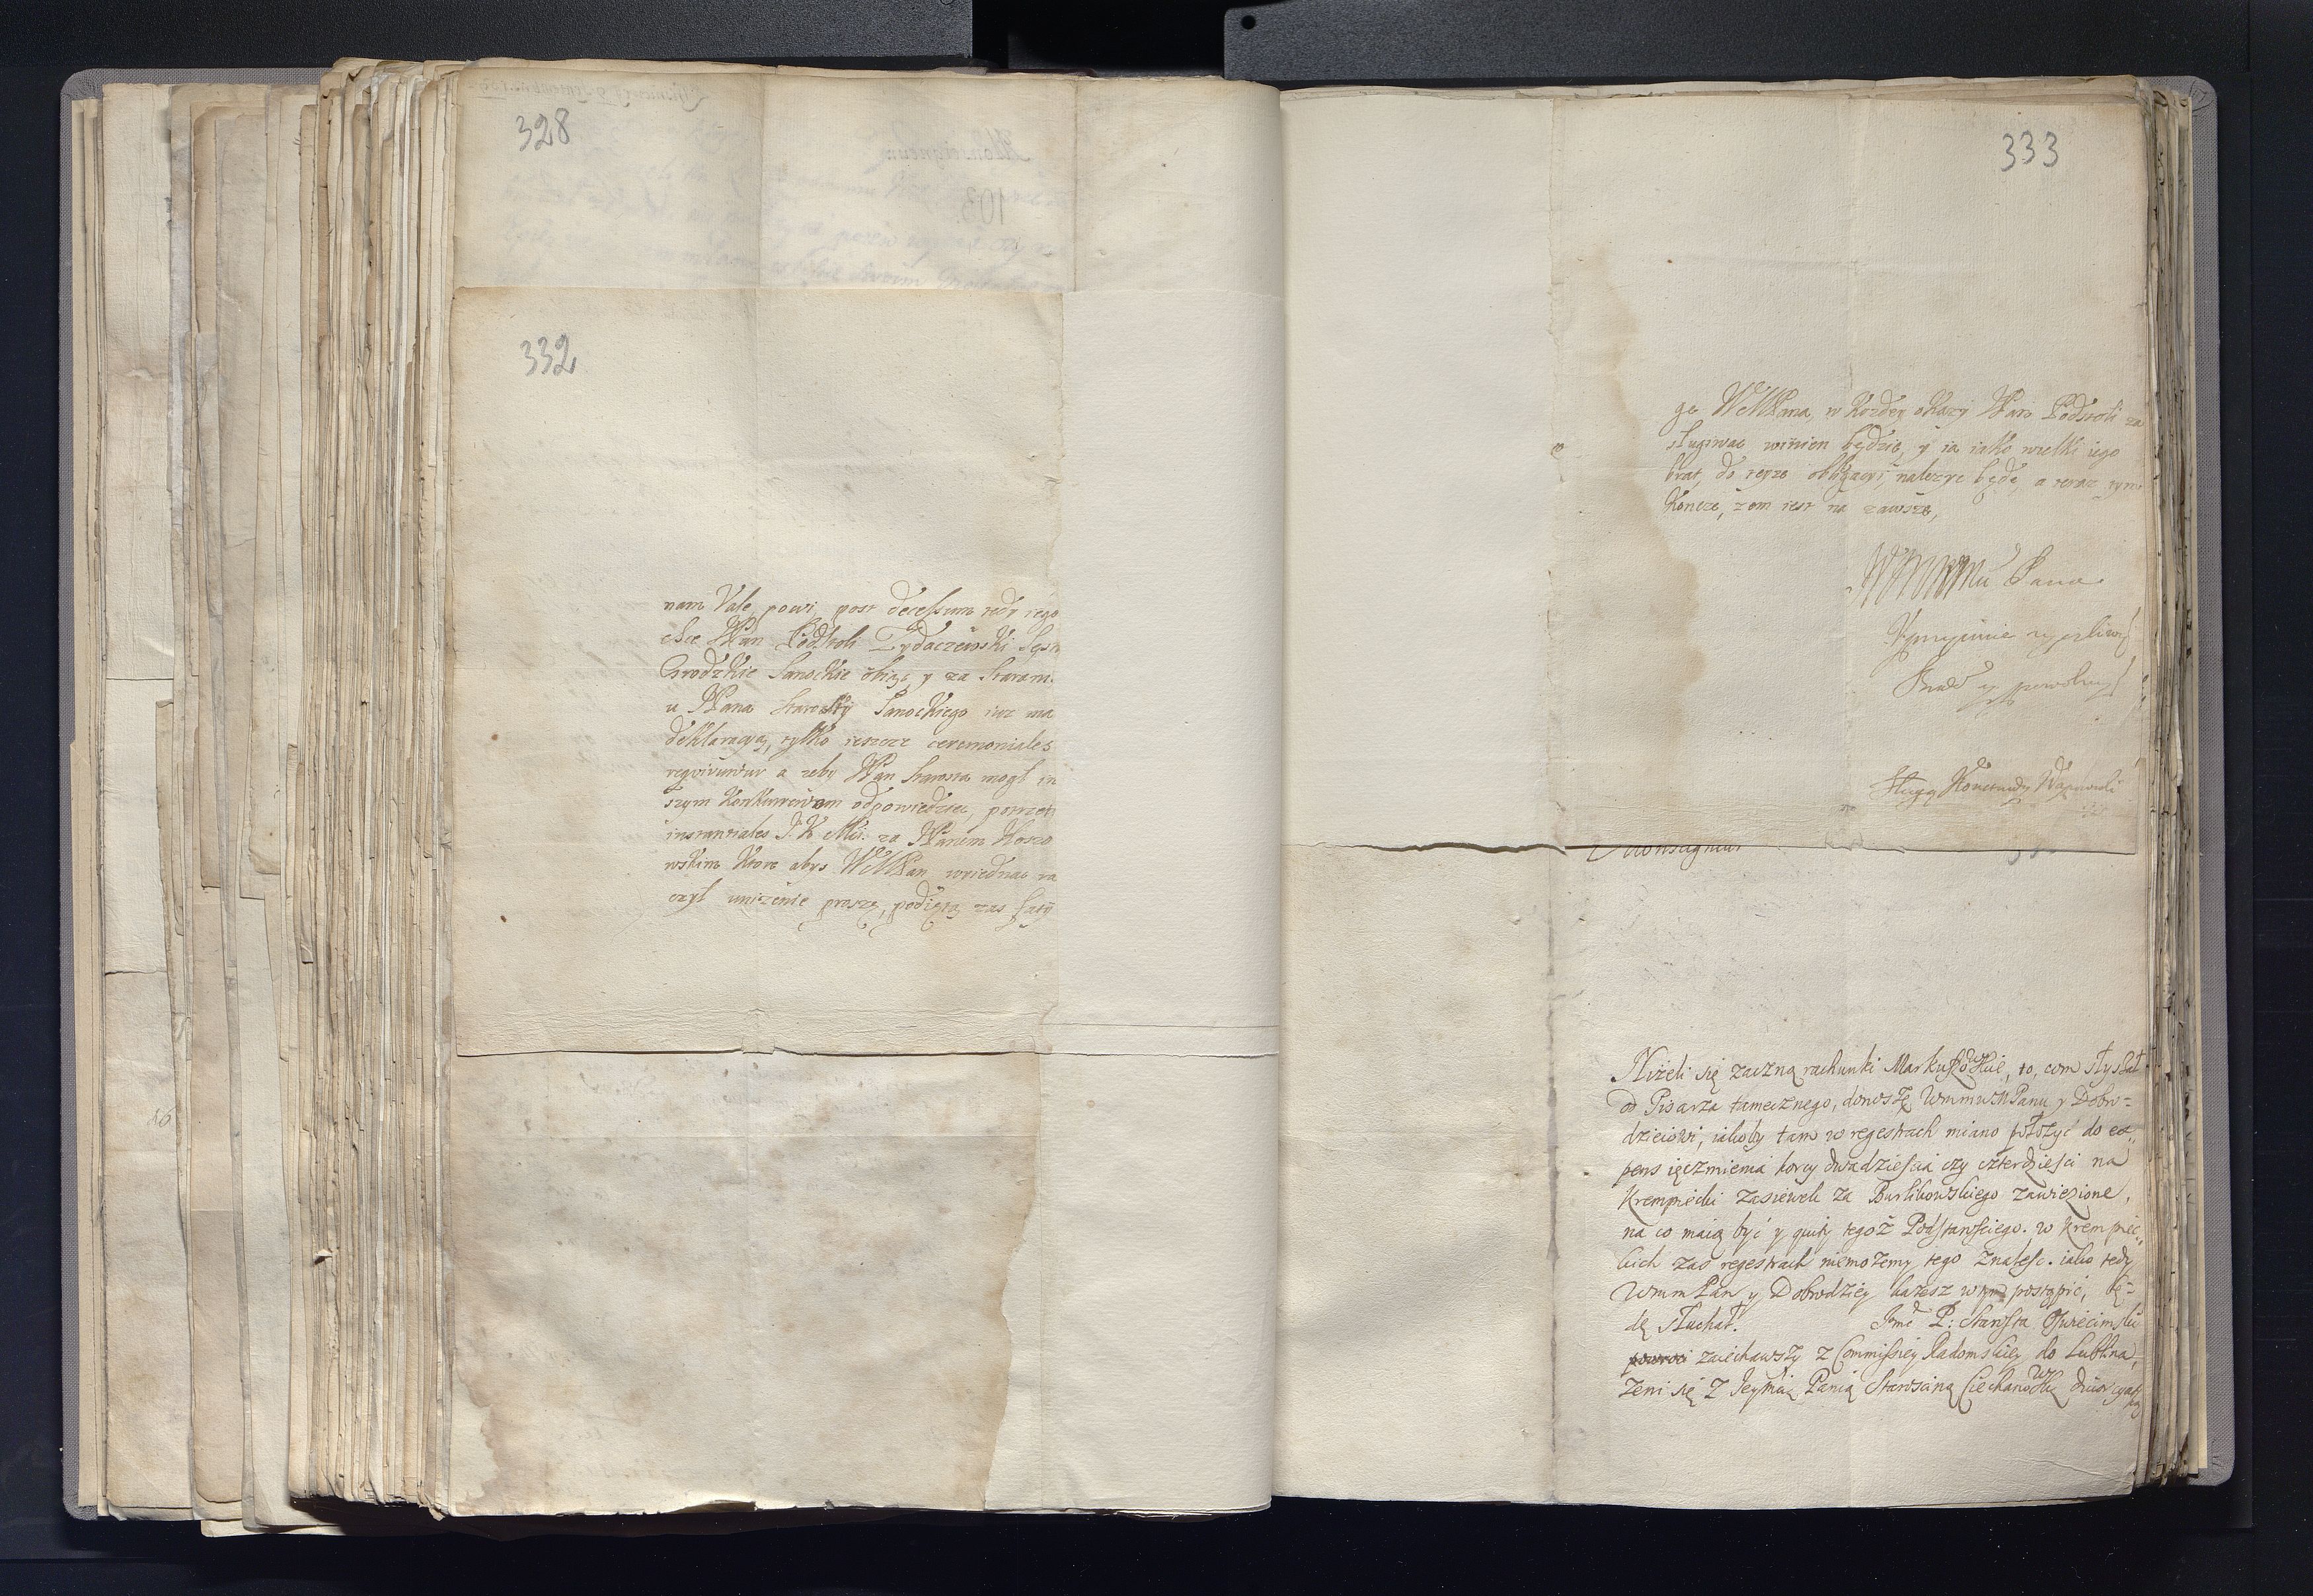 328
332
nam Vale powi, post decessum tedy tego
chce JPan Podstoli Zydaczewski Sęstwo
Grodzkie Sanockie obiąć, y za staram.
u JPana Starosty Sanockiego iuz ma
deklaracyą, tylko ieszcze ceremoniales
requiruntur a zeby JPan Starosta mogł in
szym Konkurentom odpowiedziec, potrzeb
instantiales J. K. Mci. za JPanem Kosso
wskim Ktore abys WMMPan wyiednac ra
czył unizenie proszę, podiętą zas fatÿ
333
gę WMMPana, w Kozdey okazÿ JPan Podstoli za
sługiwac winien będzie, y ia iako wielki iego
brat, do teyze obligacyi, nalezyc będę, a teraz tym
Koncze, zom iest na zawsze,
WMMMMu Pana
Uprzymie zyczliwy
Brat y powolny
Sługa Konstanty Wapowski
Monseigneur
Niżeli się zaczną rachunki Markuszowskie, to, com słyszał
od Pisarza tamecznego, donoszę WmmuMPanu y Dobro=
dzieiowi, iakoby tam w regestrach miano połozyć do ex„
pens ięczmienia korcy dwadziescia czy czterdziesci na
Krempiecki zasiewek za Burlikowskiego zawiezione,
na co maią być y quity tegoż Podstarosciego. w Krempiec„
kich zas regestrach niemożemy tego znalesc. iako tedy
WmmPan y Dobrodziey każesz w tym postąpić, bę=
dę słuchał. Jmć P: Starosta Oswiecimski
zaiechawszy z Commissiey Radomskiey do Lublina,
żeni się z Jeymcią Panią Starosciną Ciechanowską